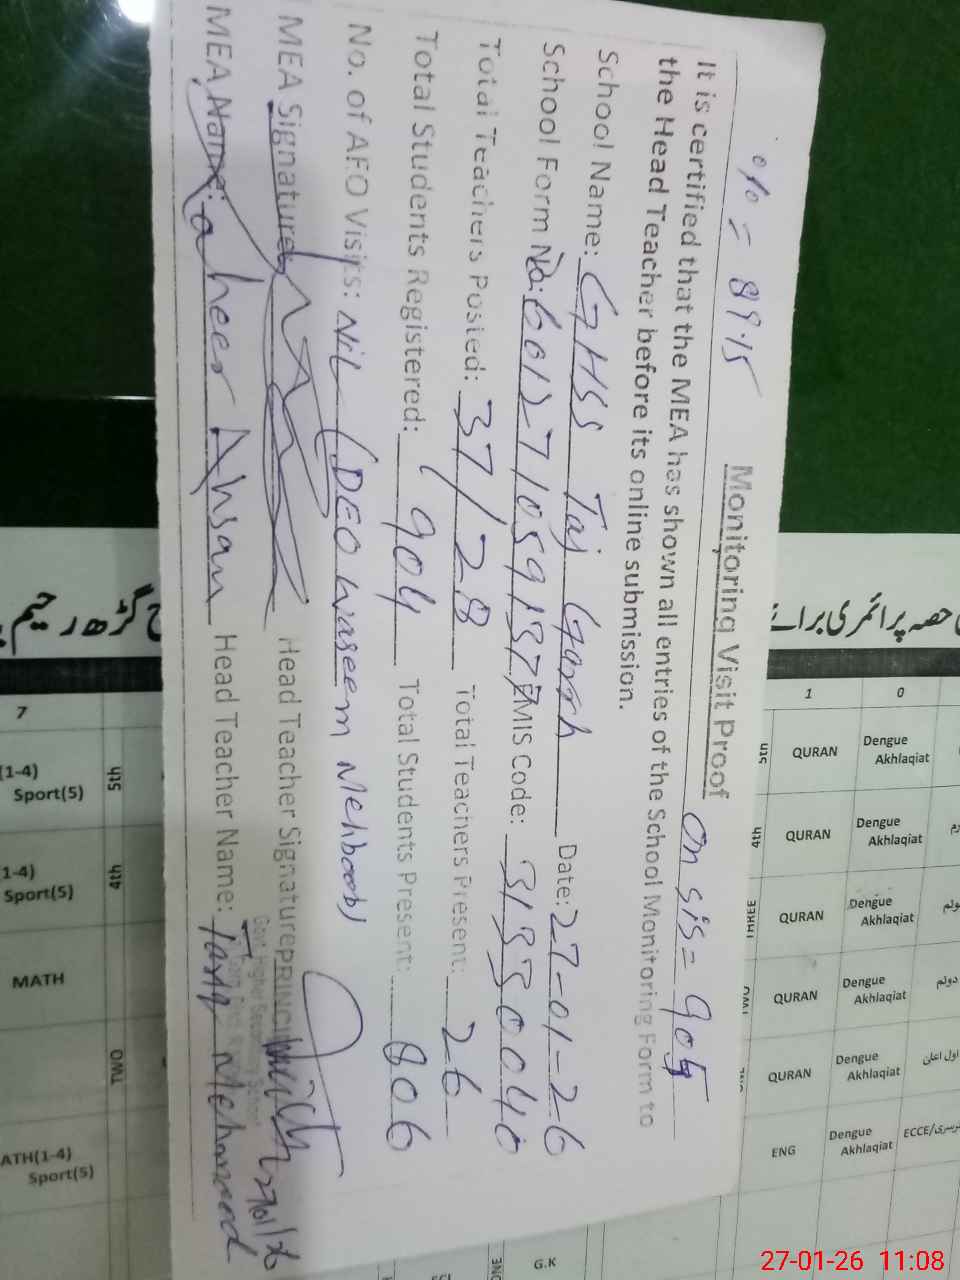 % = 89.15
Monitoring Visit Proof
On sis = 905
It is certified that the MEA has shown all entries of the School Monitoring Form to
the Head Teacher before its online submission.
School Name: GHSS Taj Garh Date: 27-01-26
School Form No: 6012710591377 EMIS Code: 31330040
Total Teachers Posted: 37/28 Total Teachers Present: 26
Total Students Registered: 904 Total Students Present: 806
No. of AEO Visits: Nil (DEO Waseem Mehboob)
MEA Signature: Head Teacher Signature
PRINCIPAL
Govt. Higher Secondary School
27/01/26
MEA Name: Zaheer Ahsan Head Teacher Name: Tariq Mehmood
حصہ پرائمری برائے
گڑھ رحیم
7
1
0
(1-4)
Sport(5)
5th
5th
QURAN
Dengue
Akhlaqiat
1-4)
Sport(5)
4th
4th
QURAN
Dengue
Akhlaqiat
MATH
THREE
QURAN
Dengue
Akhlaqiat
TWO
QURAN
Dengue
Akhlaqiat
دوئم
QURAN
Dengue
Akhlaqiat
اول اعلی
ATH(1-4)
Sport(5)
ENG
Dengue
Akhlaqiat
ECCE/نرسری
G.K
27-01-26 11:08